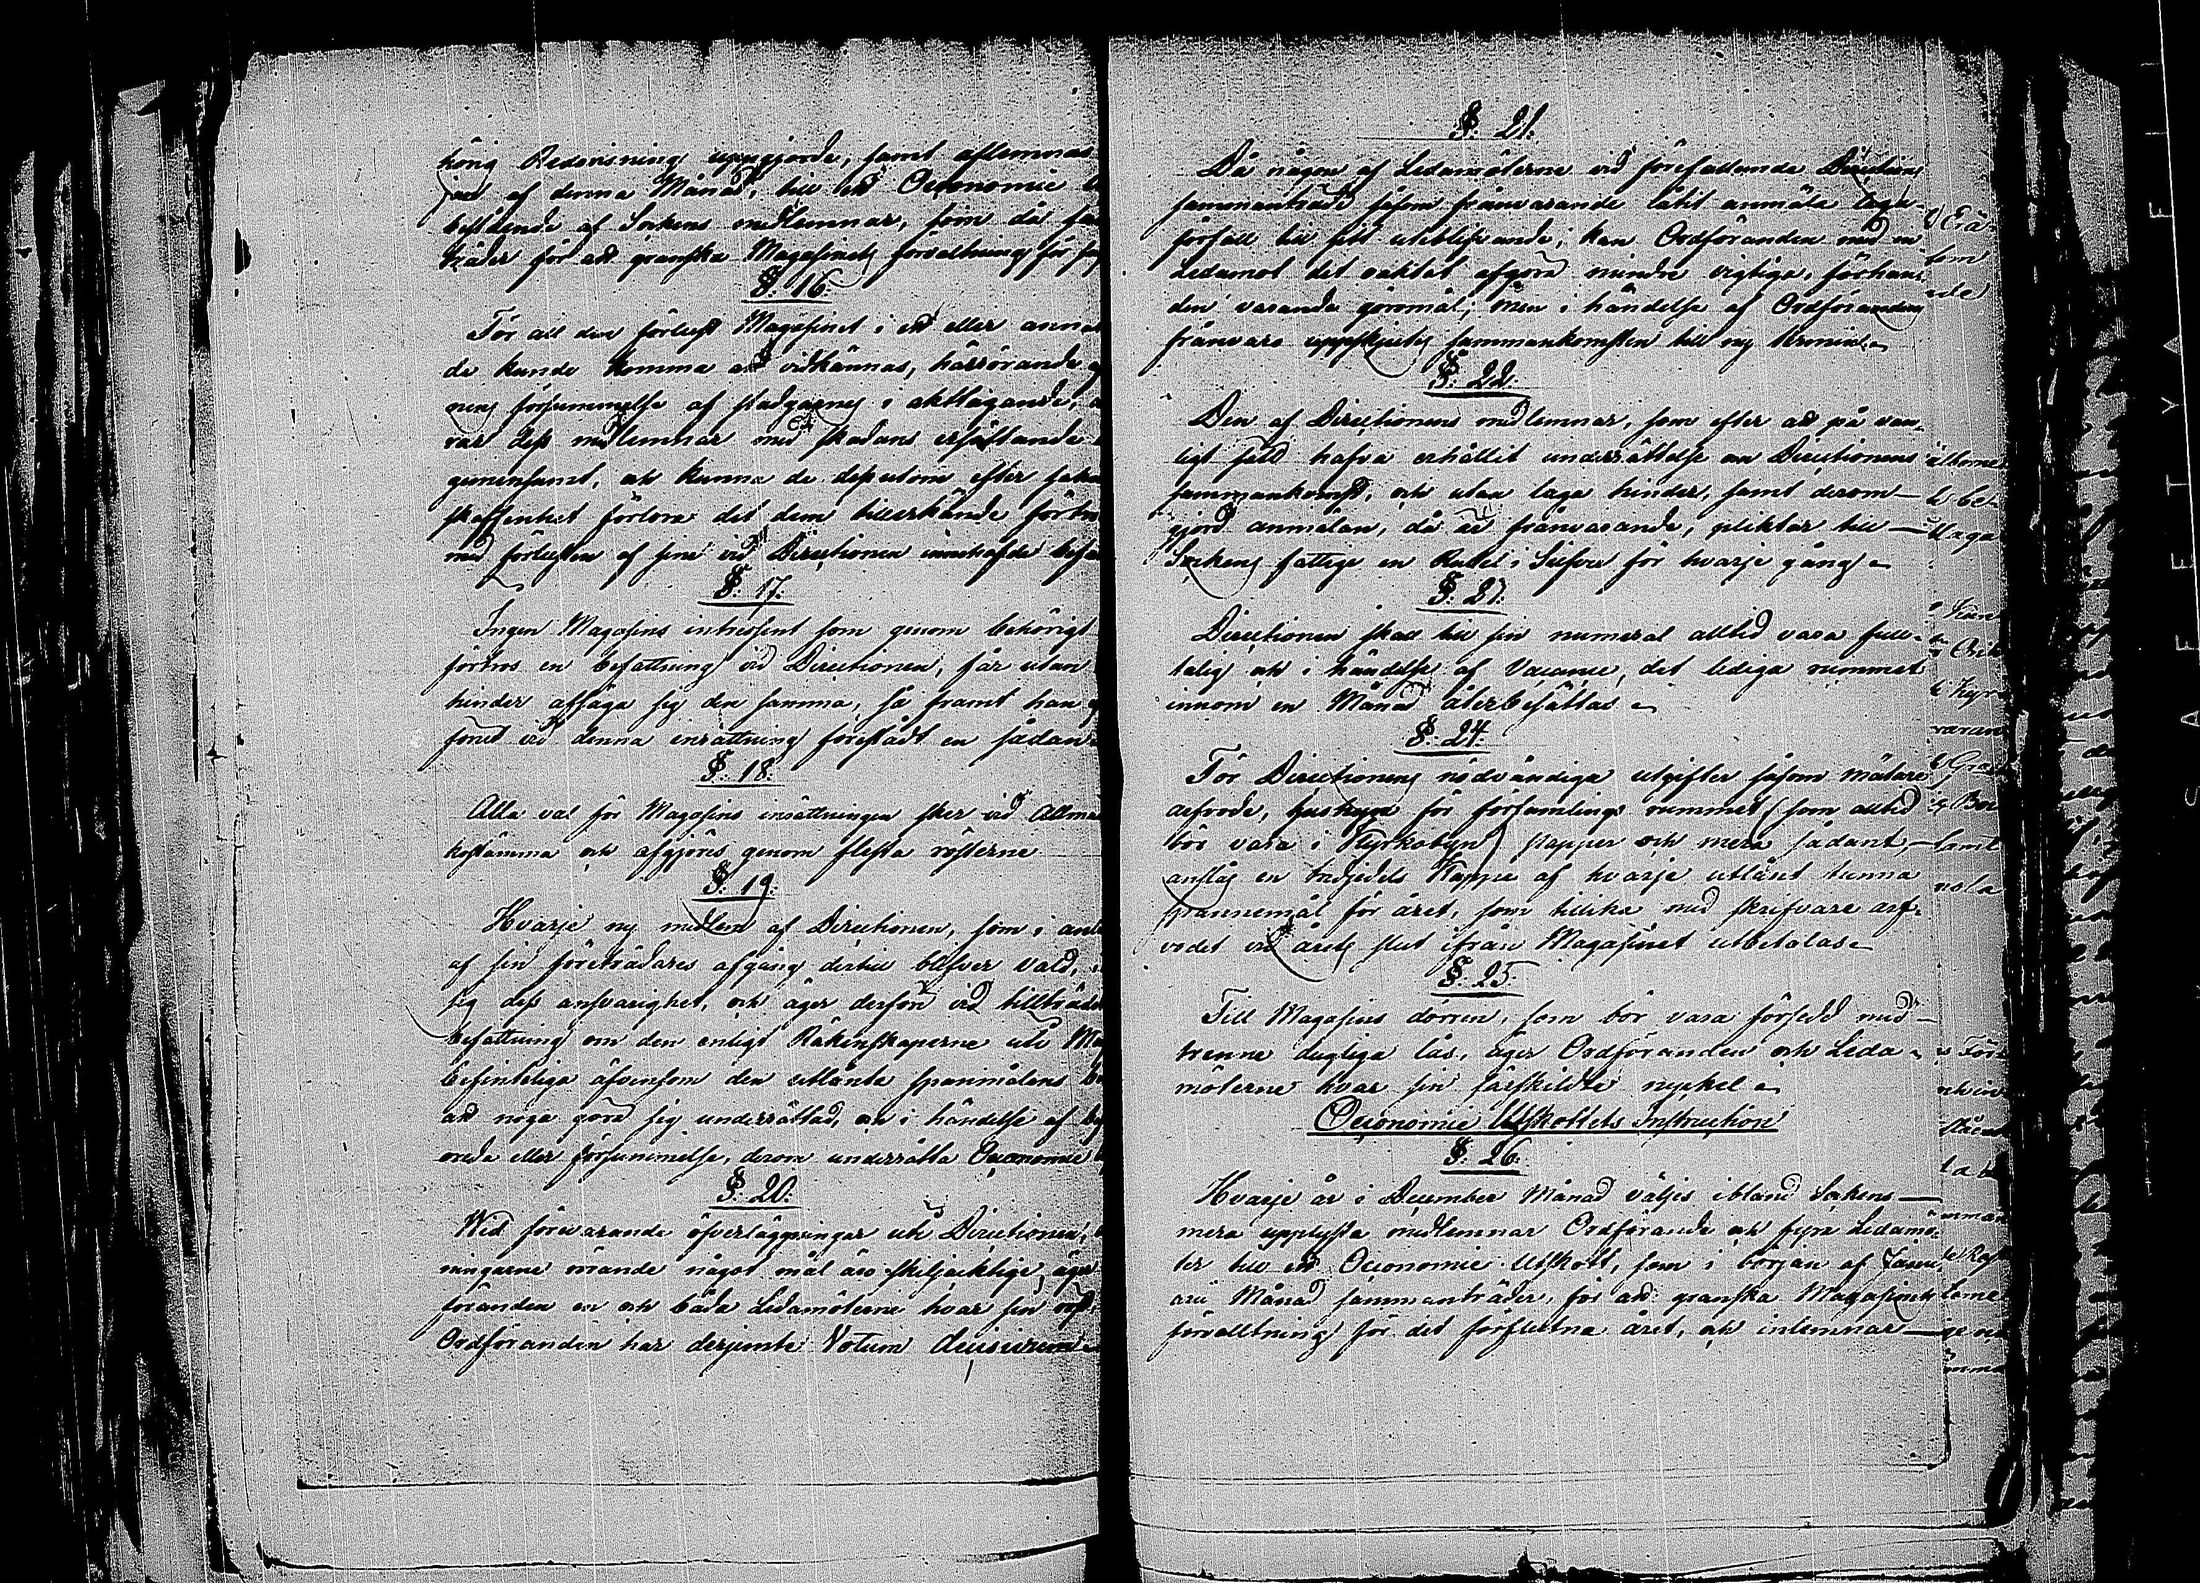 hörig Redovisning uppgjorde, samt aflemnas
af denna Månad, till ett Oeconomie
bestående af Sockens medlemmar, som då
träder för att granska Magasinets förvaltning för
§. 16.
För all den förlust Magasinet i ett eller annat
de kunde komma att vidkännas, härrörande
försummelse af stadgarnes i akttagande,
rar dess medlemmar med skadans ersättande
gemensamt, och kunna de dessutom efter
skaffenhet förlora det dem tillerkände
med förlusten af sine vid Directionen innehafde
§. 17.
Ingen Magasins intressent som genom behörigt
förtros en befattning vid Directionen, får utan
hinder afsäga sig den samma, så framt han
förut vid denna inrättning förestådt en sådan
§. 18.
Alla val för Magasins inrättningen sker vid Allmän
kostämma och afgjöres genom flesta rösterne
§. 19.
Hvarje ny medlem af Directionen, som i
af sin företrädares afgång dertill blifver vald,
sig dess ansvarighet, och äger derföre vid
befattning om den enligt Räkenskaperne uti
befinteliga äfvensom den utlånta spanmålens
att noga göra sig underrättad, och i händelse af
reda eller försummelse, derom underrätta Oeconomie
§. 20.
Wid förevarande öfverläggningar uti Directionen,
ningarne rörande något mål äro skiljaktige, äger
föranden en och båda Ledamöterne hvar sin röst,
Ordföranden har derjemte Votum decisivum
§. 21.
Då någon af Ledamöterne vid förefallande Directions
sammanträde såsom frånvarande låtit anmäla laga
förfall till sitt uteblifvande, kan Ordföranden med en
Ledamot det oaktat afgöra mindre vigtiga, förhan-
den varande göromål, men i händelse af Ordförandens
frånvaro uppskjutes sammankomsten till ny termin
§. 22.
Den af Directionens medlemmar, som efter att på van-
ligt sätt hafva erhållit underrättelse om Directionens
sammankomst, och utan laga hinder, samt derom
gjord anmälan, då är frånvarande, pliktar till
Sockens fattige en Rubel i Silfver för hvarje gång
§. 23.
Directionen skall till sin numeral alltid vara full-
talig och i händelse af Vacance, det lediga rummet
innom en Månad återbesättas
§. 24.
För Directionens nödvändiga utgifter såsom mätare
arfvode, hushyra för församlings rummet (som alltid
bör vara i Kyrkobyn) papper och mera sådant,
anslås en tredjedels Kappe af hvarje utlånt tunna
spannemål för året, som tillika med skrifvare arf-
vodet vid årets slut ifrån Magasinet utbetalas
§. 25.
Till Magasins dörren, som bör vara försedd med
trenne dugliga lås, äger Ordföranden och Leda-
möterne hvar sin särskildte nyckel
Oeconomie Utskottets Instruction
§. 26.
Hvarje år i December Månad väljes ibland Sockens
mera upplysta medlemmar Ordförande och fyra Ledamö-
ter till ett Oeconomie Utskott, som i början af Janu-
arii Månad sammanträder, för att granska Magasinets
förvaltning för det förflutna året, och inlemnar